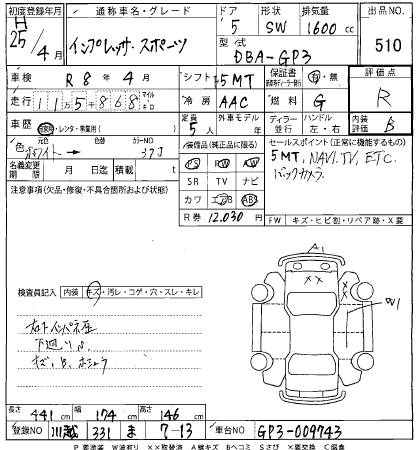 初度登録年月 通称車名・グレード ドア 形状 排気量 出品NO.
H 25/4月 インプレッサ・スポーツ 5 SW 1600cc 510
型式 DBA-GP3
車検 R8年4月 シフト 5MT 保証書 有・無 評価点
走行 115千868 マイル キロ 冷房 AAC 燃料 G R
車歴 自家用・レンタ・事業用( ) 定員 5人 外車モデル 年 ディーラー 並行 ハンドル 左・右 内装 B
色 元色 ホワイト→ 色替 カラーNO 37J
装備品(純正品に限る) セールスポイント(正常に機能するもの)
PS PW AW 5MT, NAVI, TV, ETC,
名義変更期限 月 日迄 積載 t SR TV ナビ バックカメラ
注意事項(欠品・修復・不具合個所および状態) カワ エアB ABS
R券 12,030円
FW キズ・ヒビ割・リペア跡・X要
A1
検査員記入 内装 キズ・汚レ・コゲ・穴・スレ・キレ
W1
下廻りS
キズ、B、
長さ 441cm 幅 174cm 高さ 146cm
登録NO 川越 331 ま 7-13 車台NO GP3-009743
P要塗装 W波有り ××取替済 A線キズ Bヘコミ Sさび ×要交換 C腐食